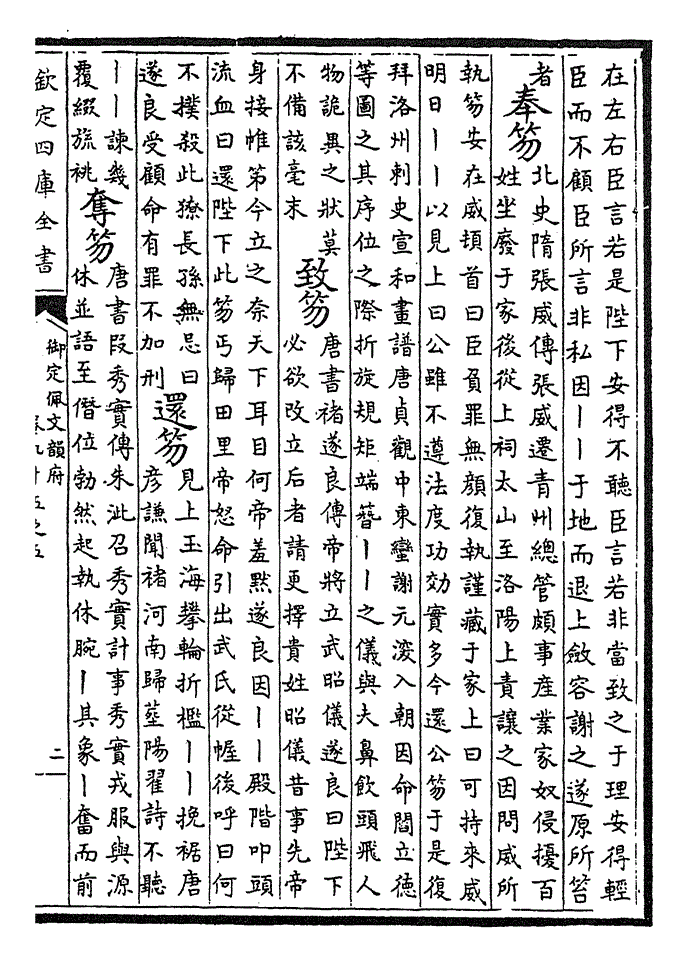 在左右臣言若是陛下安得不聽臣言若非當致之于理安得輕
臣而不顧臣所言非私因丨丨于地而退上斂容謝之遂原所笞
者
奉笏
北史隋張威傳張威遷青州總管頗事産業家奴侵擾百
姓坐廢于家後從上祠太山至洛陽上責讓之因問威所
執笏安在威頓首曰臣負罪無顔復執謹藏于家上曰可持來威
明日丨丨以見上曰公雖不遵法度功効實多今還公笏于是復
拜洛州刺史宣和畫譜唐貞觀中東蠻謝元深入朝因命閻立德
等圖之其序位之際折旋規矩端簪丨丨之儀與夫鼻飲頭飛人
物詭異之狀莫
不備該毫末
致笏
唐書禇遂良傳帝將立武昭儀遂良曰陛下
必欲改立后者請更擇貴姓昭儀昔事先帝
身接帷第今立之奈天下耳目何帝羞黙遂良因丨丨殿階叩頭
流血曰還陛下此笏丐歸田里帝怒命引出武氏從幄後呼曰何
不撲殺此獠長孫無忌曰
遂良受顧命有罪不加刑
還笏
見上玉海攀輪折檻丨丨挽裾唐
彦謙聞禇河南歸葬陽翟詩不聽
丨丨諫幾
覆綴旒祧
奪笏
唐書段秀實傳朱泚召秀實計事秀實戎服與源
休並語至僭位勃然起執休腕丨其象丨奮而前
欽定四庫全書
御定佩文韻府
二